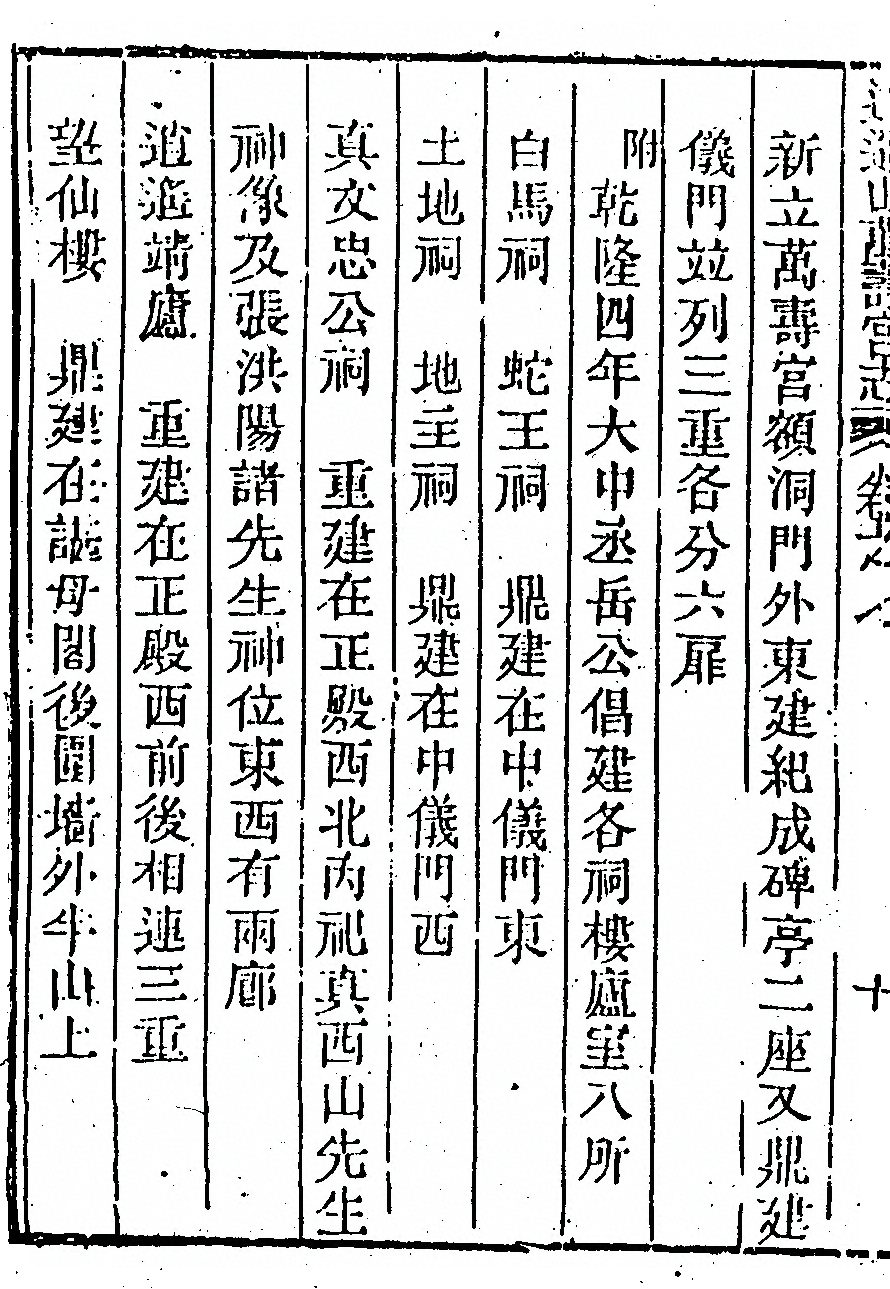 新立萬壽宮額洞門外東建紀成碑亭二座又鼎建
儀門竝列三重各分六扉
附乾隆四年大中丞岳公倡建各祠樓廬室八所
白馬祠　蛇王祠　鼎建在中儀門東
土地祠　地主祠　鼎建在中儀門西
真文忠公祠　重建在正殿西北內祀真西山先生
神像及張洪陽諸先生神位東西有兩廊
逍遙靖廬　重建在正殿西前後相連三重
望仙樓　鼎建在諶母閣後圍墻外半山上
山萬壽宮志
十